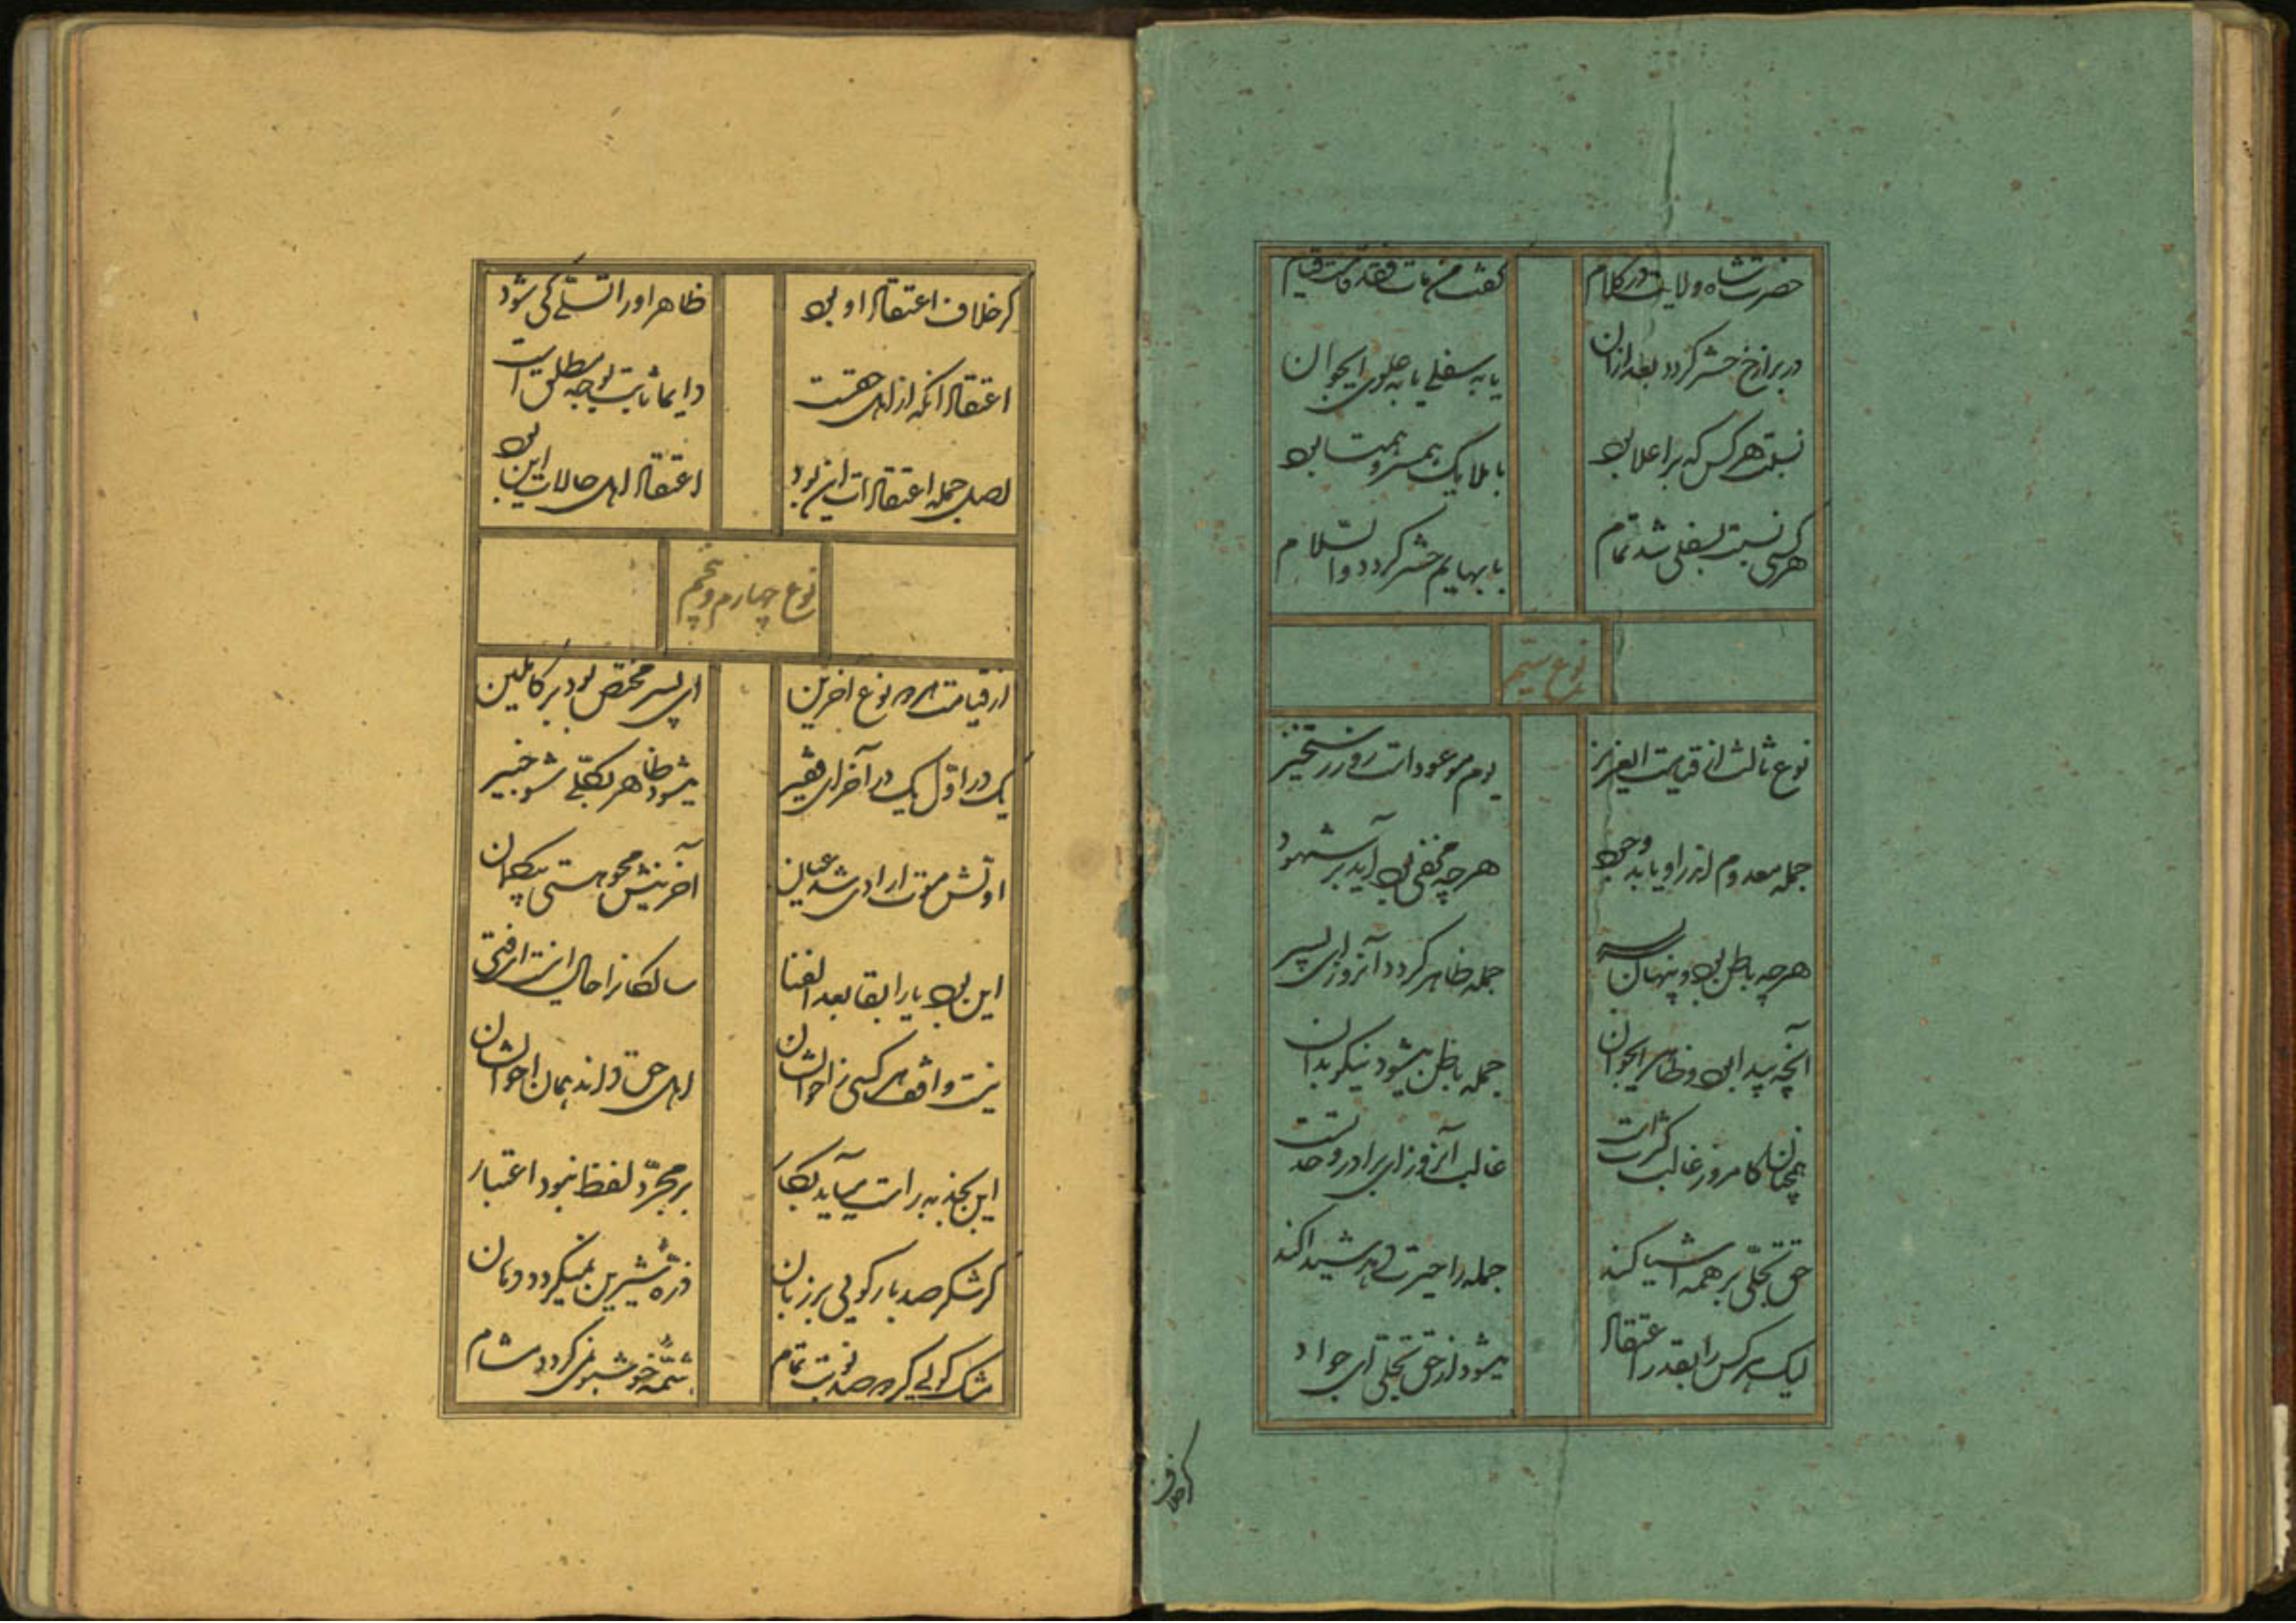 حضرت شاه ولایت در کلام
گفت من مات فقد قامت قیام
در برازخ حشر گردد بعد ازان
یا به سفلی یا به علوی ایجوان
نسبت هر کس که بر اعلا بود
با ملایک همسر و همتا بود
هر کسی نسبت بسفلی شد تمام
با بهایم حشر گردد والسّلام
نوع سیّم
نوع ثالث از قیامت ایعزیز
یوم موعود است روز رستخیز
جمله معدوم اندر او یابد وجود
هر چه مخفی بود آید بر شهود
هر چه باطن بود و پنهان سربسر
جمله ظاهر گردد آنروز ای پسر
آنچه پیدا بود و ظاهر ایجوان
جمله باطن میشود نیکو بدان
همچنان کامروز غالب کثرتست
غالب آنروز ای برادر وحدتست
حق تجلّی بر همه اشیا کند
جمله را حیرت دهد شیدا کند
لیک هر کس را بقدر اعتقاد
میشود از حق تجلّی ای جواد
گر خلاف
گر خلاف اعتقاد او بود
ظاهر او را تسلّی کی شود
اعتقاد آنکه از اهل حقست
دایما ثابت بوجه مطلق است
اصل جمله اعتقادات این بود
اعتقاد اهل حالات این بود
نوع چهارم و پنجم
از قیامت هر دو نوع آخرین
ای پسر مختص بود بر کاملین
یک در اوّل یک در آخر ای فقیر
میشود ظاهر تجلّی شو خبیر
اوّلش موت ارادی شد عیان
آخرینش محو هستی بیگمان
این بود یارا بقا بعد الفنا
سالکانرا حال اینست ای فتی
نیست واقف هر کسی ز احوالشان
اهل حق داند همان احوالشان
این بجذبه راست می‌آید بکار
بر مجرّد لفظ نبود اعتبار
گر شکر صد بار گویی بر زبان
ذرّه شیرین نمیگردد دهان
مشک گویی گر دو صد نوبت تمام
شمّه خوشبو نگردد مشام